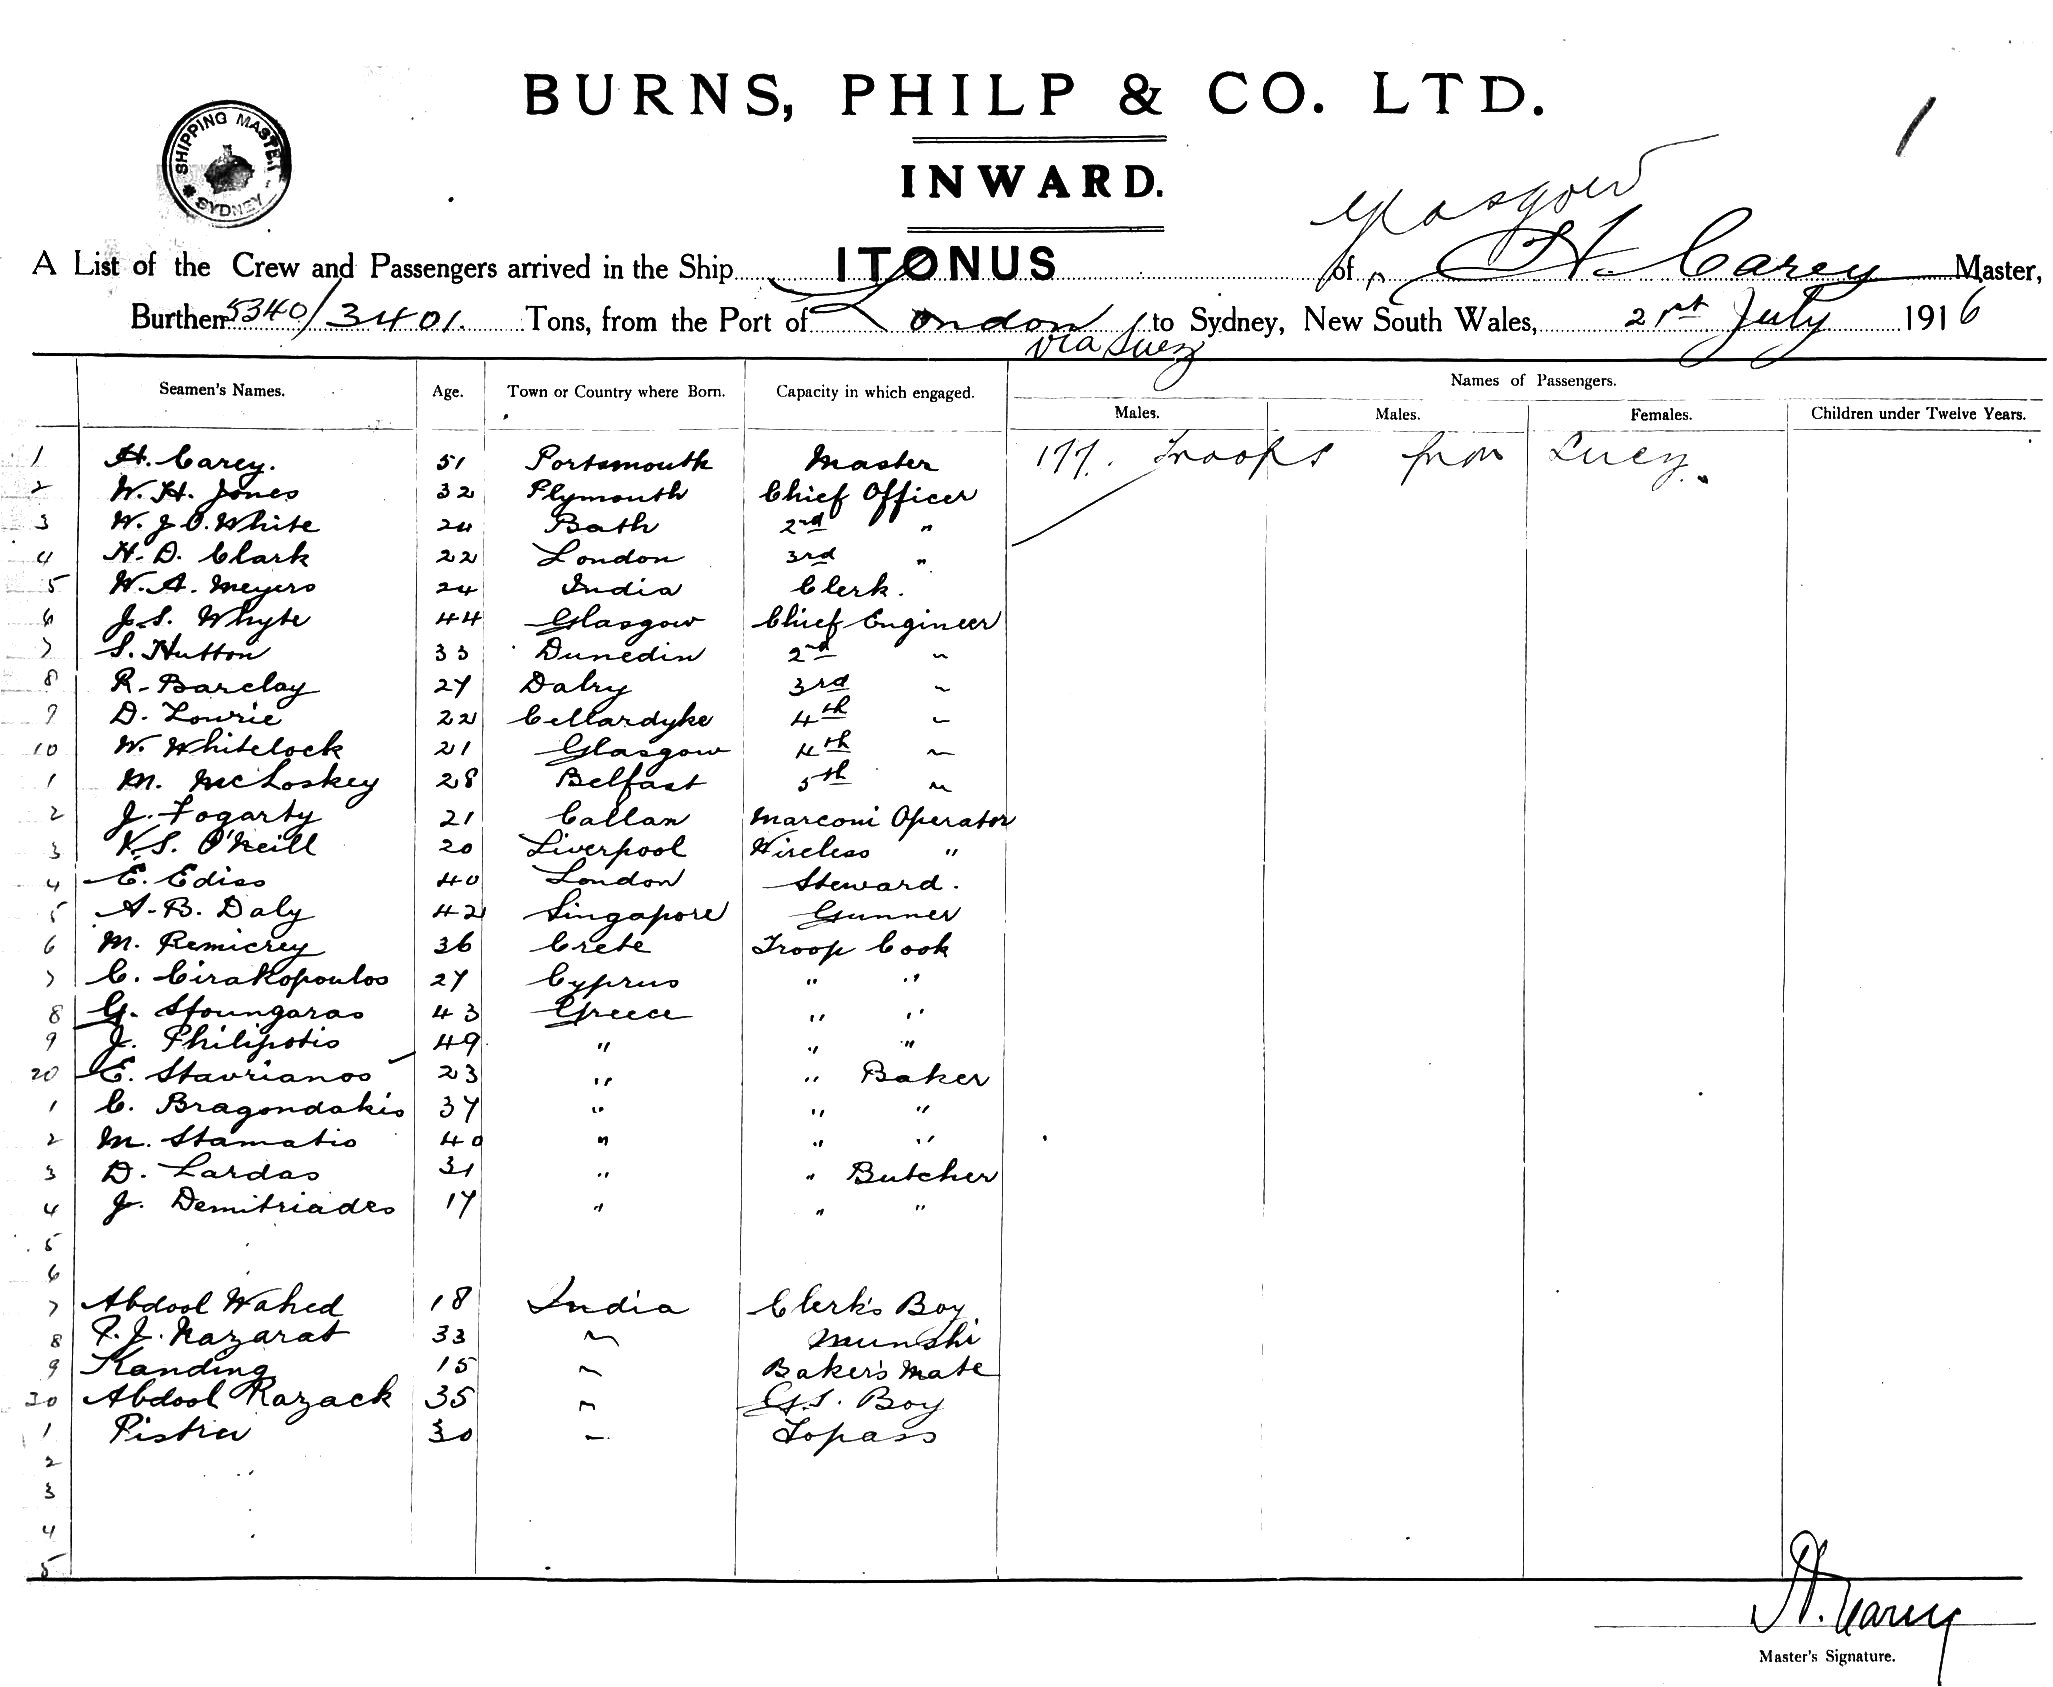 BURNS, PHILP & CO. LTD.
1
INWARD.
SHIPPING MASTER
SYDNEY
Glasgow
A List of the Crew and Passengers arrived in the Ship ITONUS of H. Carey Master,
Burthen 5340/3401. Tons, from the Port of London to Sydney, New South Wales, 21st July 1916
via Suez
Seamen's Names. Age. Town or Country where Born. Capacity in which engaged. Names of Passengers.
Males. Males. Females. Children under Twelve Years.
1 H. Carey. 51 Portsmouth Master 177. Troops from Suez.
2 W. H. Jones 32 Plymouth Chief Officer
3 W. J. O. White 24 Bath 2nd "
4 H. D. Clark 22 London 3rd "
5 W. A. Meyers 24 India Clerk.
6 J. S. Whyte 44 Glasgow Chief Engineer
7 S. Hutton 33 Dunedin 2nd "
8 R. Barclay 27 Dalry 3rd "
9 D. Lowrie 22 Cellardyke 4th "
10 W. Whitelock 21 Glasgow 4th "
1 M. McLoskey 28 Belfast 5th "
2 J. Fogarty 21 Callan Marconi Operator
3 K. S. O'Neill 20 Liverpool Wireless "
4 E. Ediss 40 London Steward.
5 A. B. Daly 42 Singapore Gunner
6 M. Remicrey 36 Crete Troop Cook
7 C. Cirakopoulos 27 Cyprus " "
8 G. Sfoungaras 43 Greece " "
9 J. Philipotis 49 " " "
20 E. Stavrianos 23 " " Baker
1 C. Bragondakis 37 " " "
2 M. Stamatis 40 " " "
3 D. Lardas 31 " " Butcher
4 J. Demitriades 17 " " "
5
6
7 Abdool Wahed 18 India Clerk's Boy
8 P. J. Nazarat 33 " Munshi
9 Kanding 15 " Baker's Mate
30 Abdool Razack 35 " G.S. Boy
1 30 " Topass
2
3
4
5
H. Carey
Master's Signature.